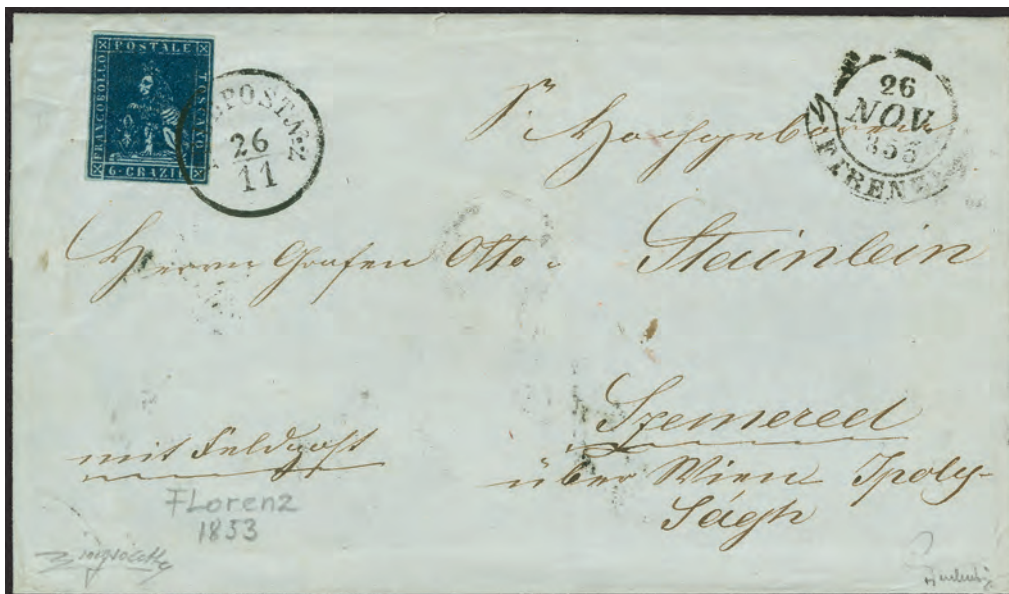 FRANCOBOLLO POSTALE TOSCANO
6 · CRAZIE
POST. N: 2
26
11
26
NOV.
FIRENZE
Sr Hochgeboren
Herrn Grafen Otto v Stainlein
Szemered
mit Feldpost
über Wien Ipoly-
Ságh
FLorenz
1853